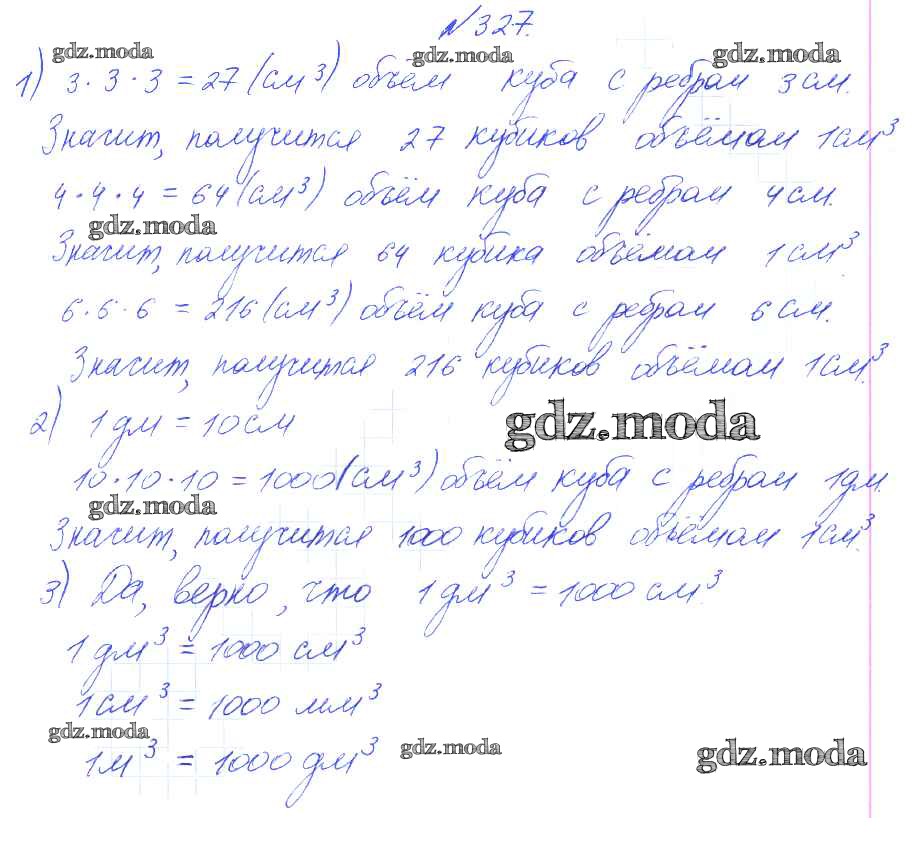 №327.
gdz.moda gdz.moda gdz.moda
1) 3·3·3=27(см³) объём куба с ребром 3 см.
Значит, получится 27 кубиков объёмом 1 см³
4·4·4=64(см³) объём куба с ребром 4 см.
gdz.moda
Значит, получится 64 кубика объёмом 1 см³
6·6·6=216(см³) объём куба с ребром 6 см.
Значит, получится 216 кубиков объёмом 1 см³.
2) 1 дм=10 см
gdz.moda
10·10·10=1000(см³) объём куба с ребром 1 дм.
gdz.moda
Значит, получится 1000 кубиков объёмом 1 см³.
3) Да, верно, что 1 дм³=1000 см³.
1 дм³=1000 см³
1 см³=1000 мм³
gdz.moda gdz.moda gdz.moda
1 м³=1000 дм³